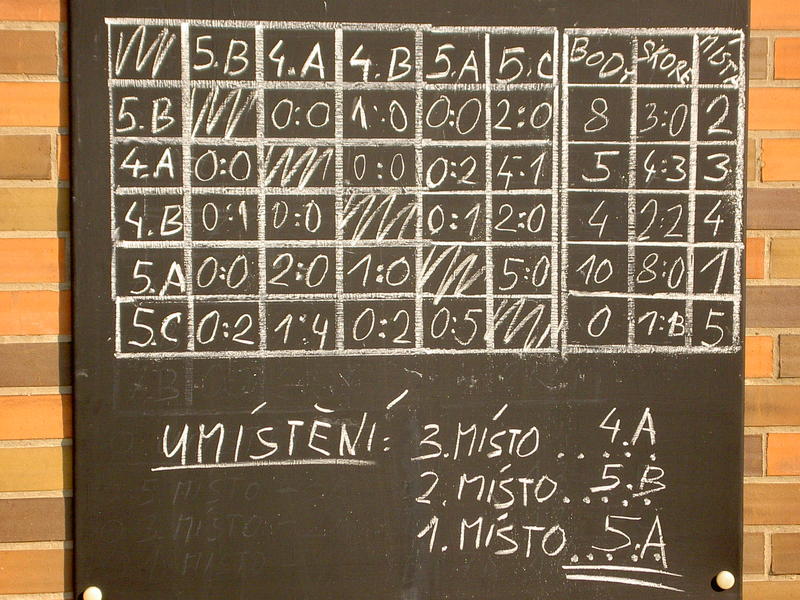 5.B 4.A 4.B 5.A 5.C BODY SKÓRE MÍSTO
5.B 0:0 1:0 0:0 2:0 8 3:0 2
4.A 0:0 0:0 0:2 4:1 5 4:3 3
4.B 0:1 0:0 0:1 2:0 4 2:2 4
5.A 0:0 2:0 1:0 5:0 10 8:0 1
5.C 0:2 1:4 0:2 0:5 0 1:13 5
UMÍSTĚNÍ: 3.MÍSTO ..... 4.A
2.MÍSTO..... 5.B
1.MÍSTO..... 5.A